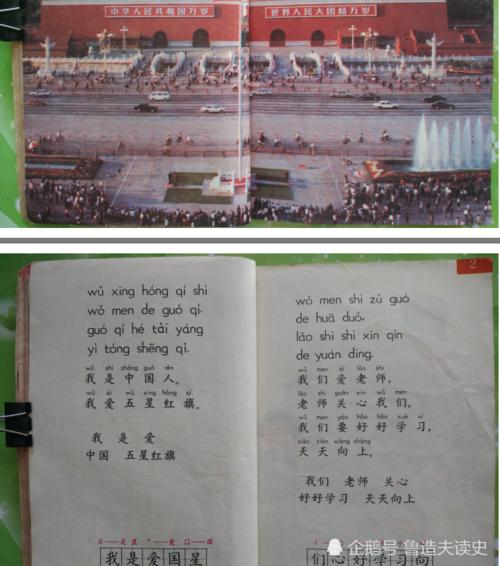 中华人民共和国万岁
世界人民大团结万岁
wǔ xīng hóng qí shì
wǒ men de guó qí.
guó qí hé tài yáng
yì tóng shēng qǐ.
wǒ shì zhōng guó rén
我是中国人。
wǒ ài wǔ xīng hóng qí
我爱五星红旗。
我 是 爱
中国 五星红旗
日 是 星 爱 口 国
我是爱国星
2
wǒ men shì zǔ guó
de huā duǒ,
lǎo shī shì xīn qín
de yuán dīng.
wǒ men ài lǎo shī
我们爱老师，
lǎo shī guān xīn wǒ men
老师关心我们。
wǒ men yào hǎo hǎo xué xí
我们要好好学习，
tiān tiān xiàng shàng
天天向上。
我们 老师 关心
好好学习 天天向上
们心好学习向
企鹅号 鲁造夫读史